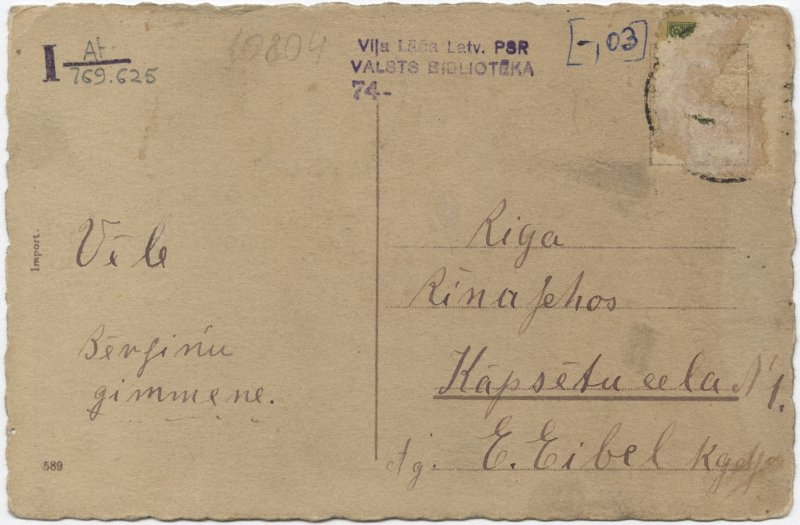 I At
769.625
10804
Viļa Lāča Latv. PSR
VALSTS BIBLIOTĒKA
74-
[-,03]
Import.
Vēle
Bērziņu
gimmene.
589
Rīga
Kāpsētu eela N 1.
E. Eibel kgdze